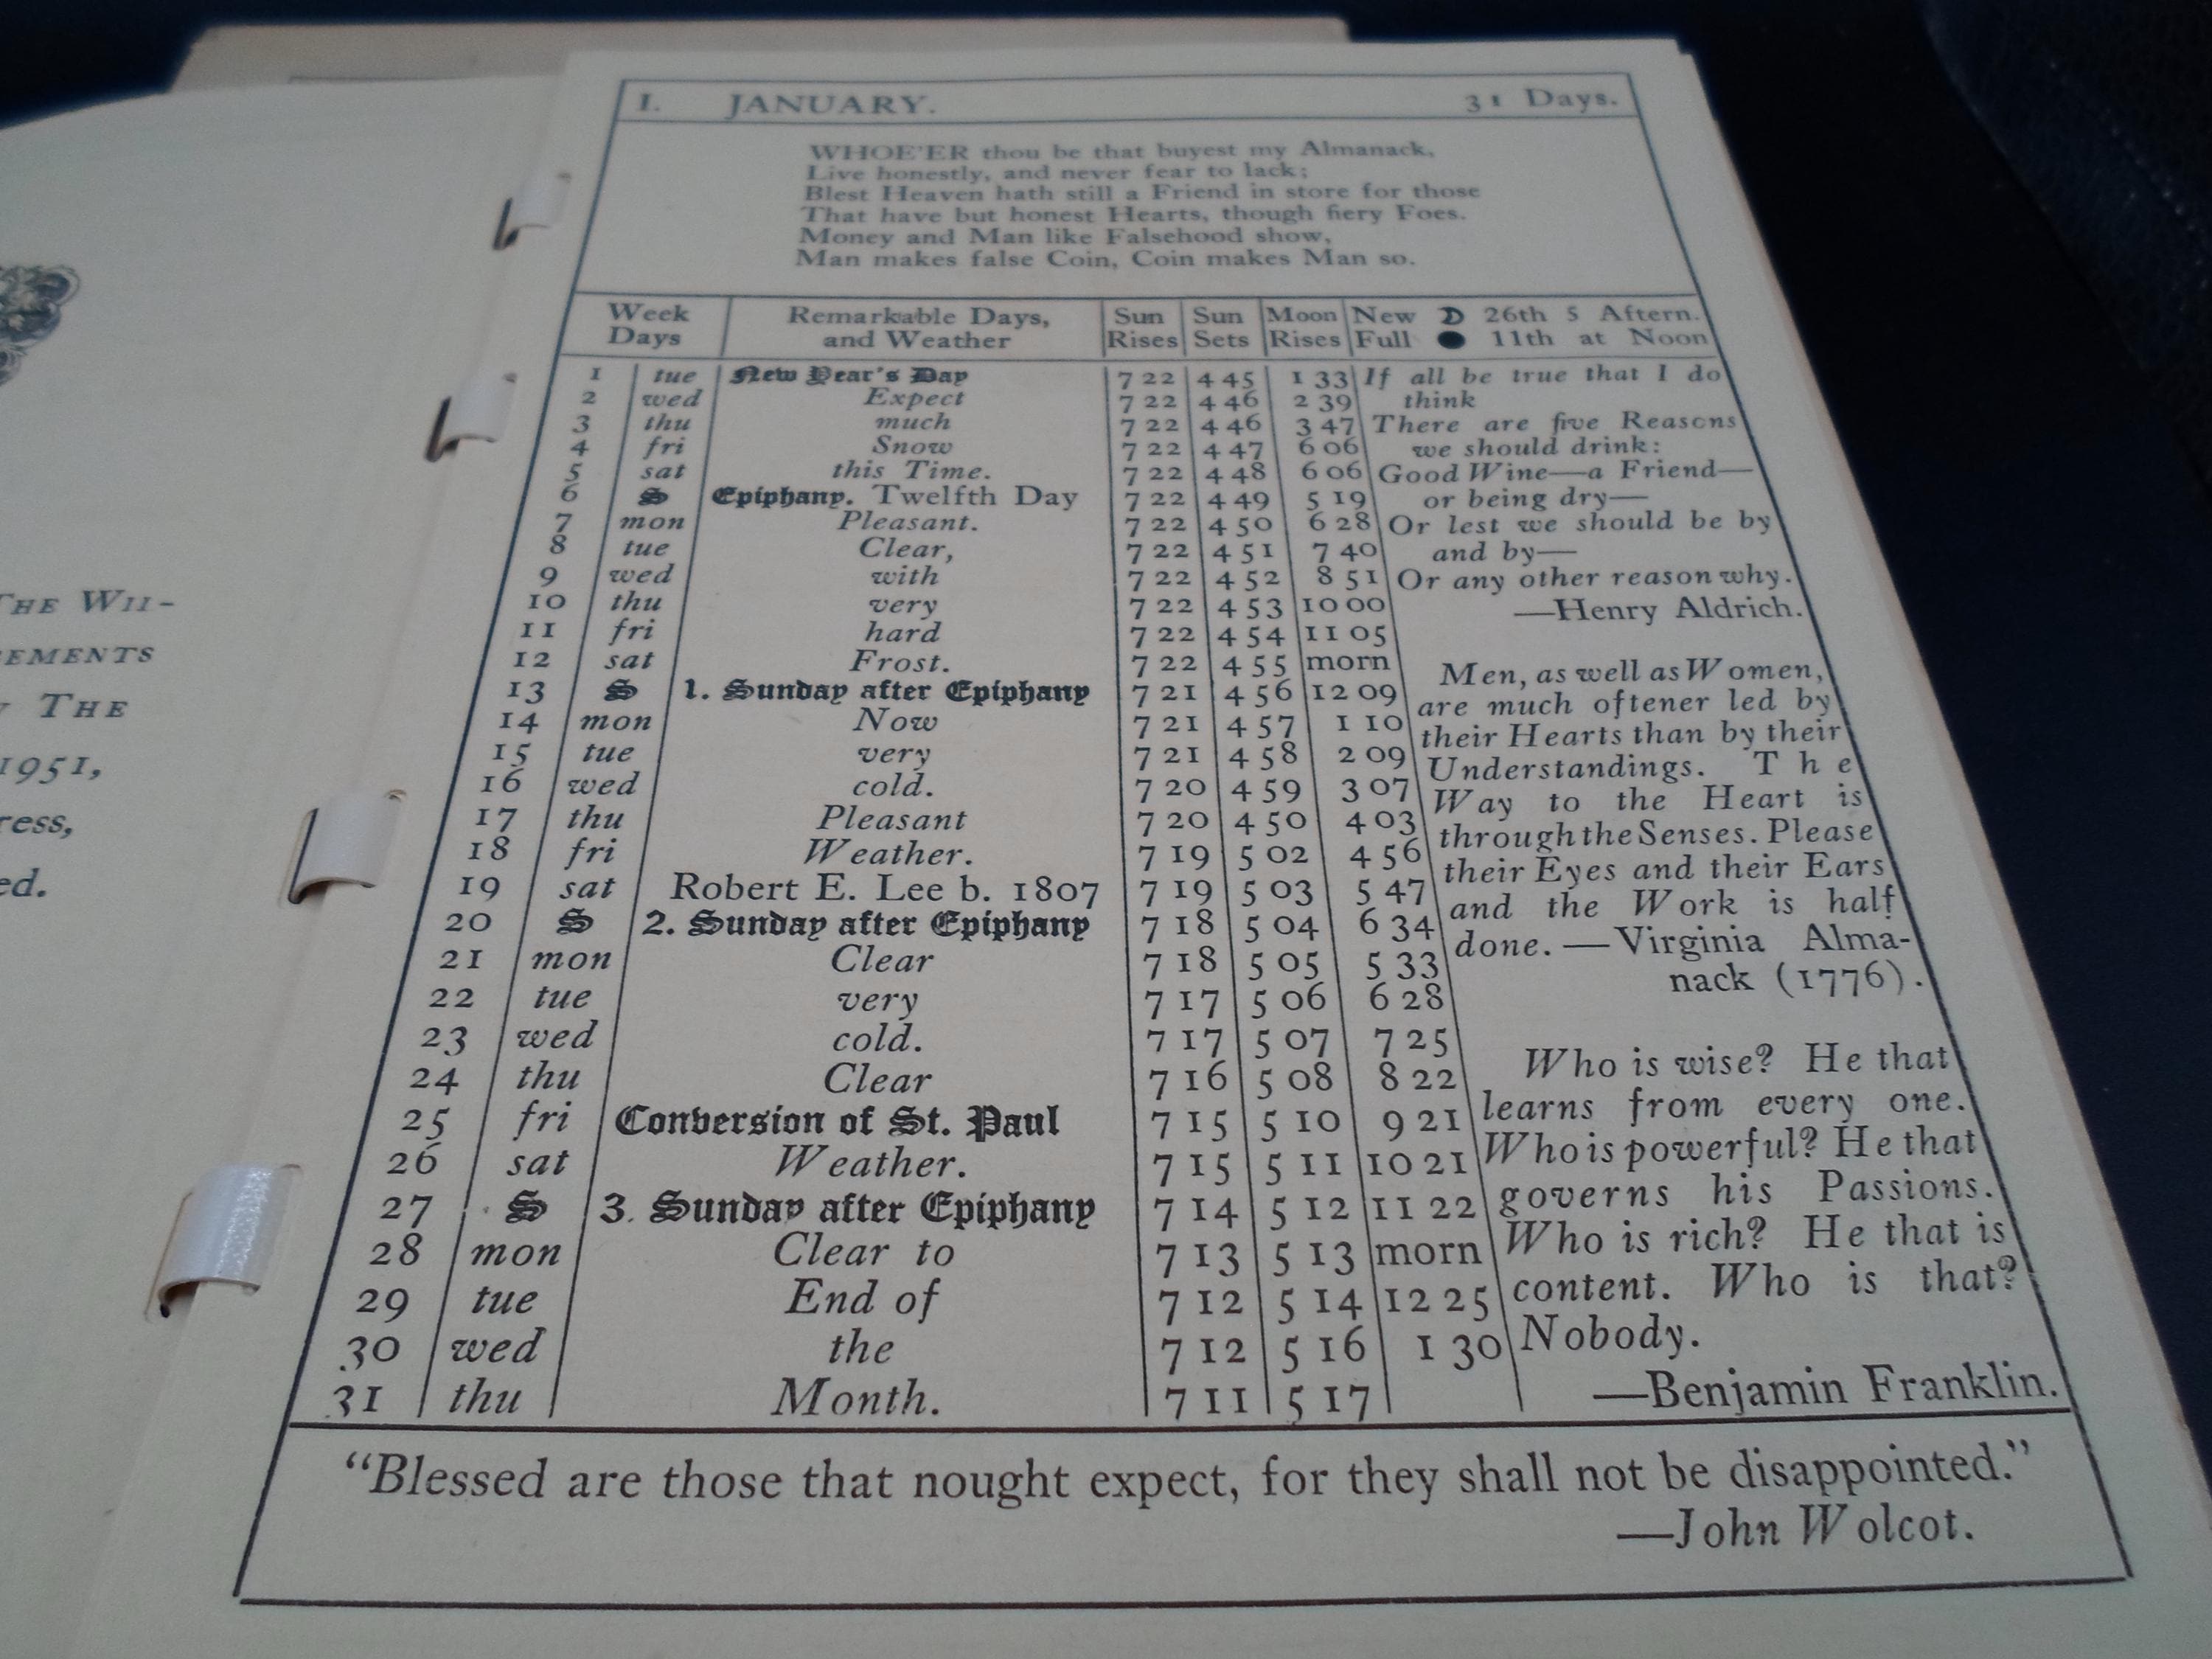 THE WIL-
EMENTS
THE
1951,
ress,
ed.
I. JANUARY. 31 Days.
WHOE'ER thou be that buyest my Almanack,
Live honestly, and never fear to lack;
Blest Heaven hath still a Friend in store for those
That have but honest Hearts, though fiery Foes.
Money and Man like Falsehood show,
Man makes false Coin, Coin makes Man so.
Week Days | Remarkable Days, and Weather | Sun Rises | Sun Sets | Moon Rises | New 26th 5 Aftern. Full 11th at Noon
1 tue New Year's Day 7 22 4 45 1 33
2 wed Expect 7 22 4 46 2 39
3 thu much 7 22 4 46 3 47
4 fri Snow 7 22 4 47 6 06
5 sat this Time. 7 22 4 48 6 06
6 S Epiphany. Twelfth Day 7 22 4 49 5 19
7 mon Pleasant. 7 22 4 50 6 28
8 tue Clear, 7 22 4 51 7 40
9 wed with 7 22 4 52 8 51
10 thu very 7 22 4 53 10 00
11 fri hard 7 22 4 54 11 05
12 sat Frost. 7 22 4 55 morn
13 S 1. Sunday after Epiphany 7 21 4 56 12 09
14 mon Now 7 21 4 57 1 10
15 tue very 7 21 4 58 2 09
16 wed cold. 7 20 4 59 3 07
17 thu Pleasant 7 20 4 50 4 03
18 fri Weather. 7 19 5 02 4 56
19 sat Robert E. Lee b. 1807 7 19 5 03 5 47
20 S 2. Sunday after Epiphany 7 18 5 04 6 34
21 mon Clear 7 18 5 05 5 33
22 tue very 7 17 5 06 6 28
23 wed cold. 7 17 5 07 7 25
24 thu Clear 7 16 5 08 8 22
25 fri Conversion of St. Paul 7 15 5 10 9 21
26 sat Weather. 7 15 5 11 10 21
27 S 3. Sunday after Epiphany 7 14 5 12 11 22
28 mon Clear to 7 13 5 13 morn
29 tue End of 7 12 5 14 12 25
30 wed the 7 12 5 16 1 30
31 thu Month. 7 11 5 17
If all be true that I do
think
There are five Reasons
we should drink:
Good Wine—a Friend—
or being dry—
Or lest we should be by
and by—
Or any other reason why.
—Henry Aldrich.
Men, as well as Women,
are much oftener led by
their Hearts than by their
Understandings. The
Way to the Heart is
through the Senses. Please
their Eyes and their Ears
and the Work is half
done. —Virginia Alma-
nack (1776).
Who is wise? He that
learns from every one.
Who is powerful? He that
governs his Passions.
Who is rich? He that is
content. Who is that?
Nobody.
—Benjamin Franklin.
"Blessed are those that nought expect, for they shall not be disappointed."
—John Wolcot.